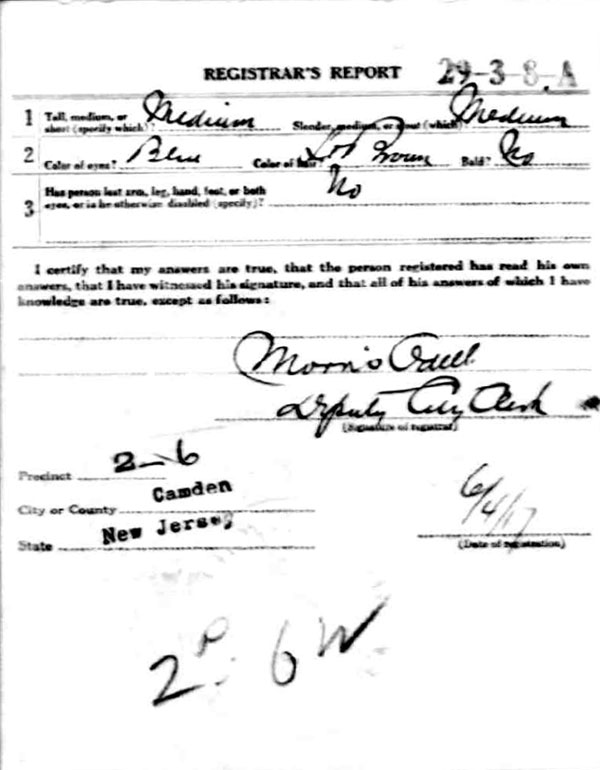 REGISTRAR'S REPORT 29-3-8-A
1 Tall, medium, or short (specify which)? Medium Slender, medium, or stout (which)? Medium
2 Color of eyes? Blue Color of hair? Brown Bald? No
3 Has person lost arm, leg, hand, foot, or both eyes, or is he otherwise disabled (specify)? No
I certify that my answers are true, that the person registered has read his own
answers, that I have witnessed his signature, and that all of his answers of which I have
knowledge are true, except as follows:
Morris Odell
Deputy City Clerk
(Signature of registrar)
Precinct 2-6
City or County Camden
State New Jersey
6/4/17
(Date of registration)
2 P. 6 W